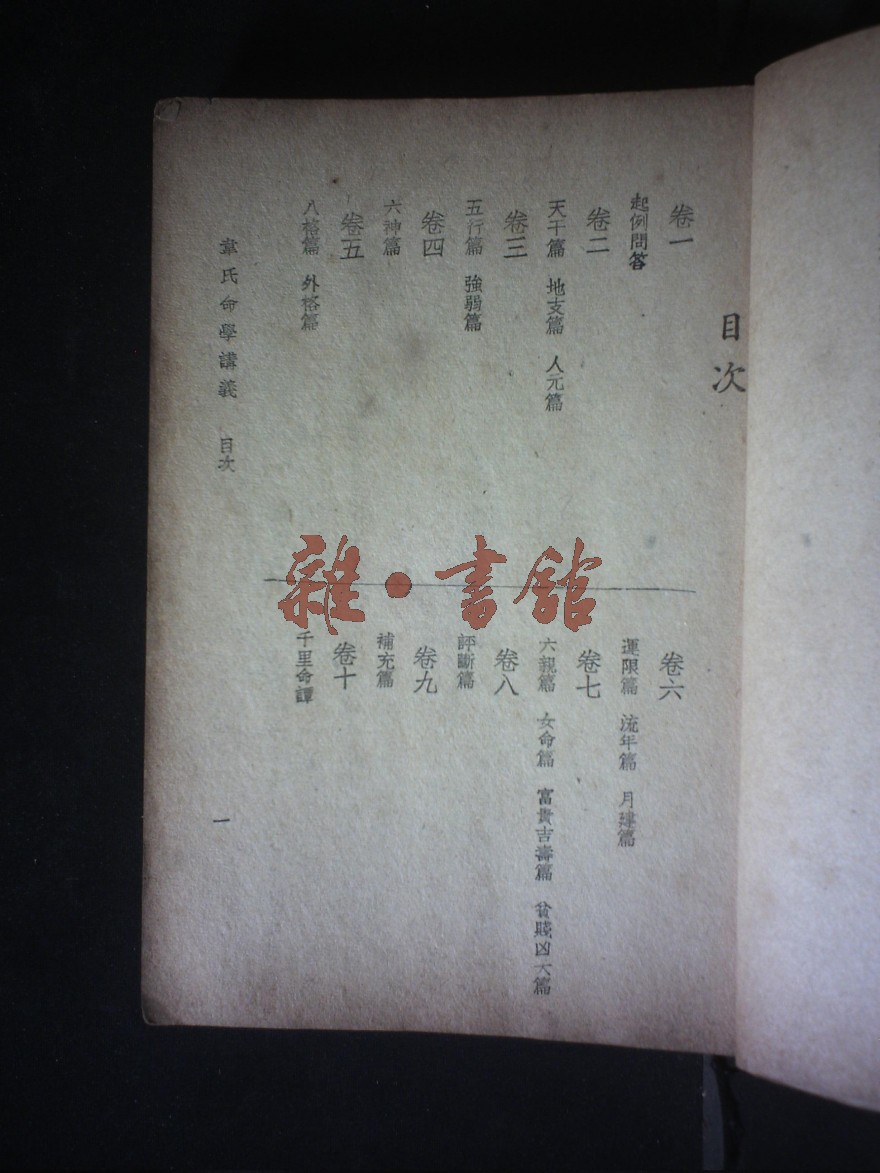 目次
卷一
起例問答
卷二
天干篇 地支篇 人元篇
卷三
五行篇 強弱篇
卷四
六神篇
卷五
八格篇 外格篇
卷六
運限篇 流年篇 月建篇
卷七
六親篇 女命篇 富貴吉壽篇 貧賤凶夭篇
卷八
評斷篇
卷九
補充篇
卷十
千里命譚
韋氏命學講義 目次
一
雜·書館